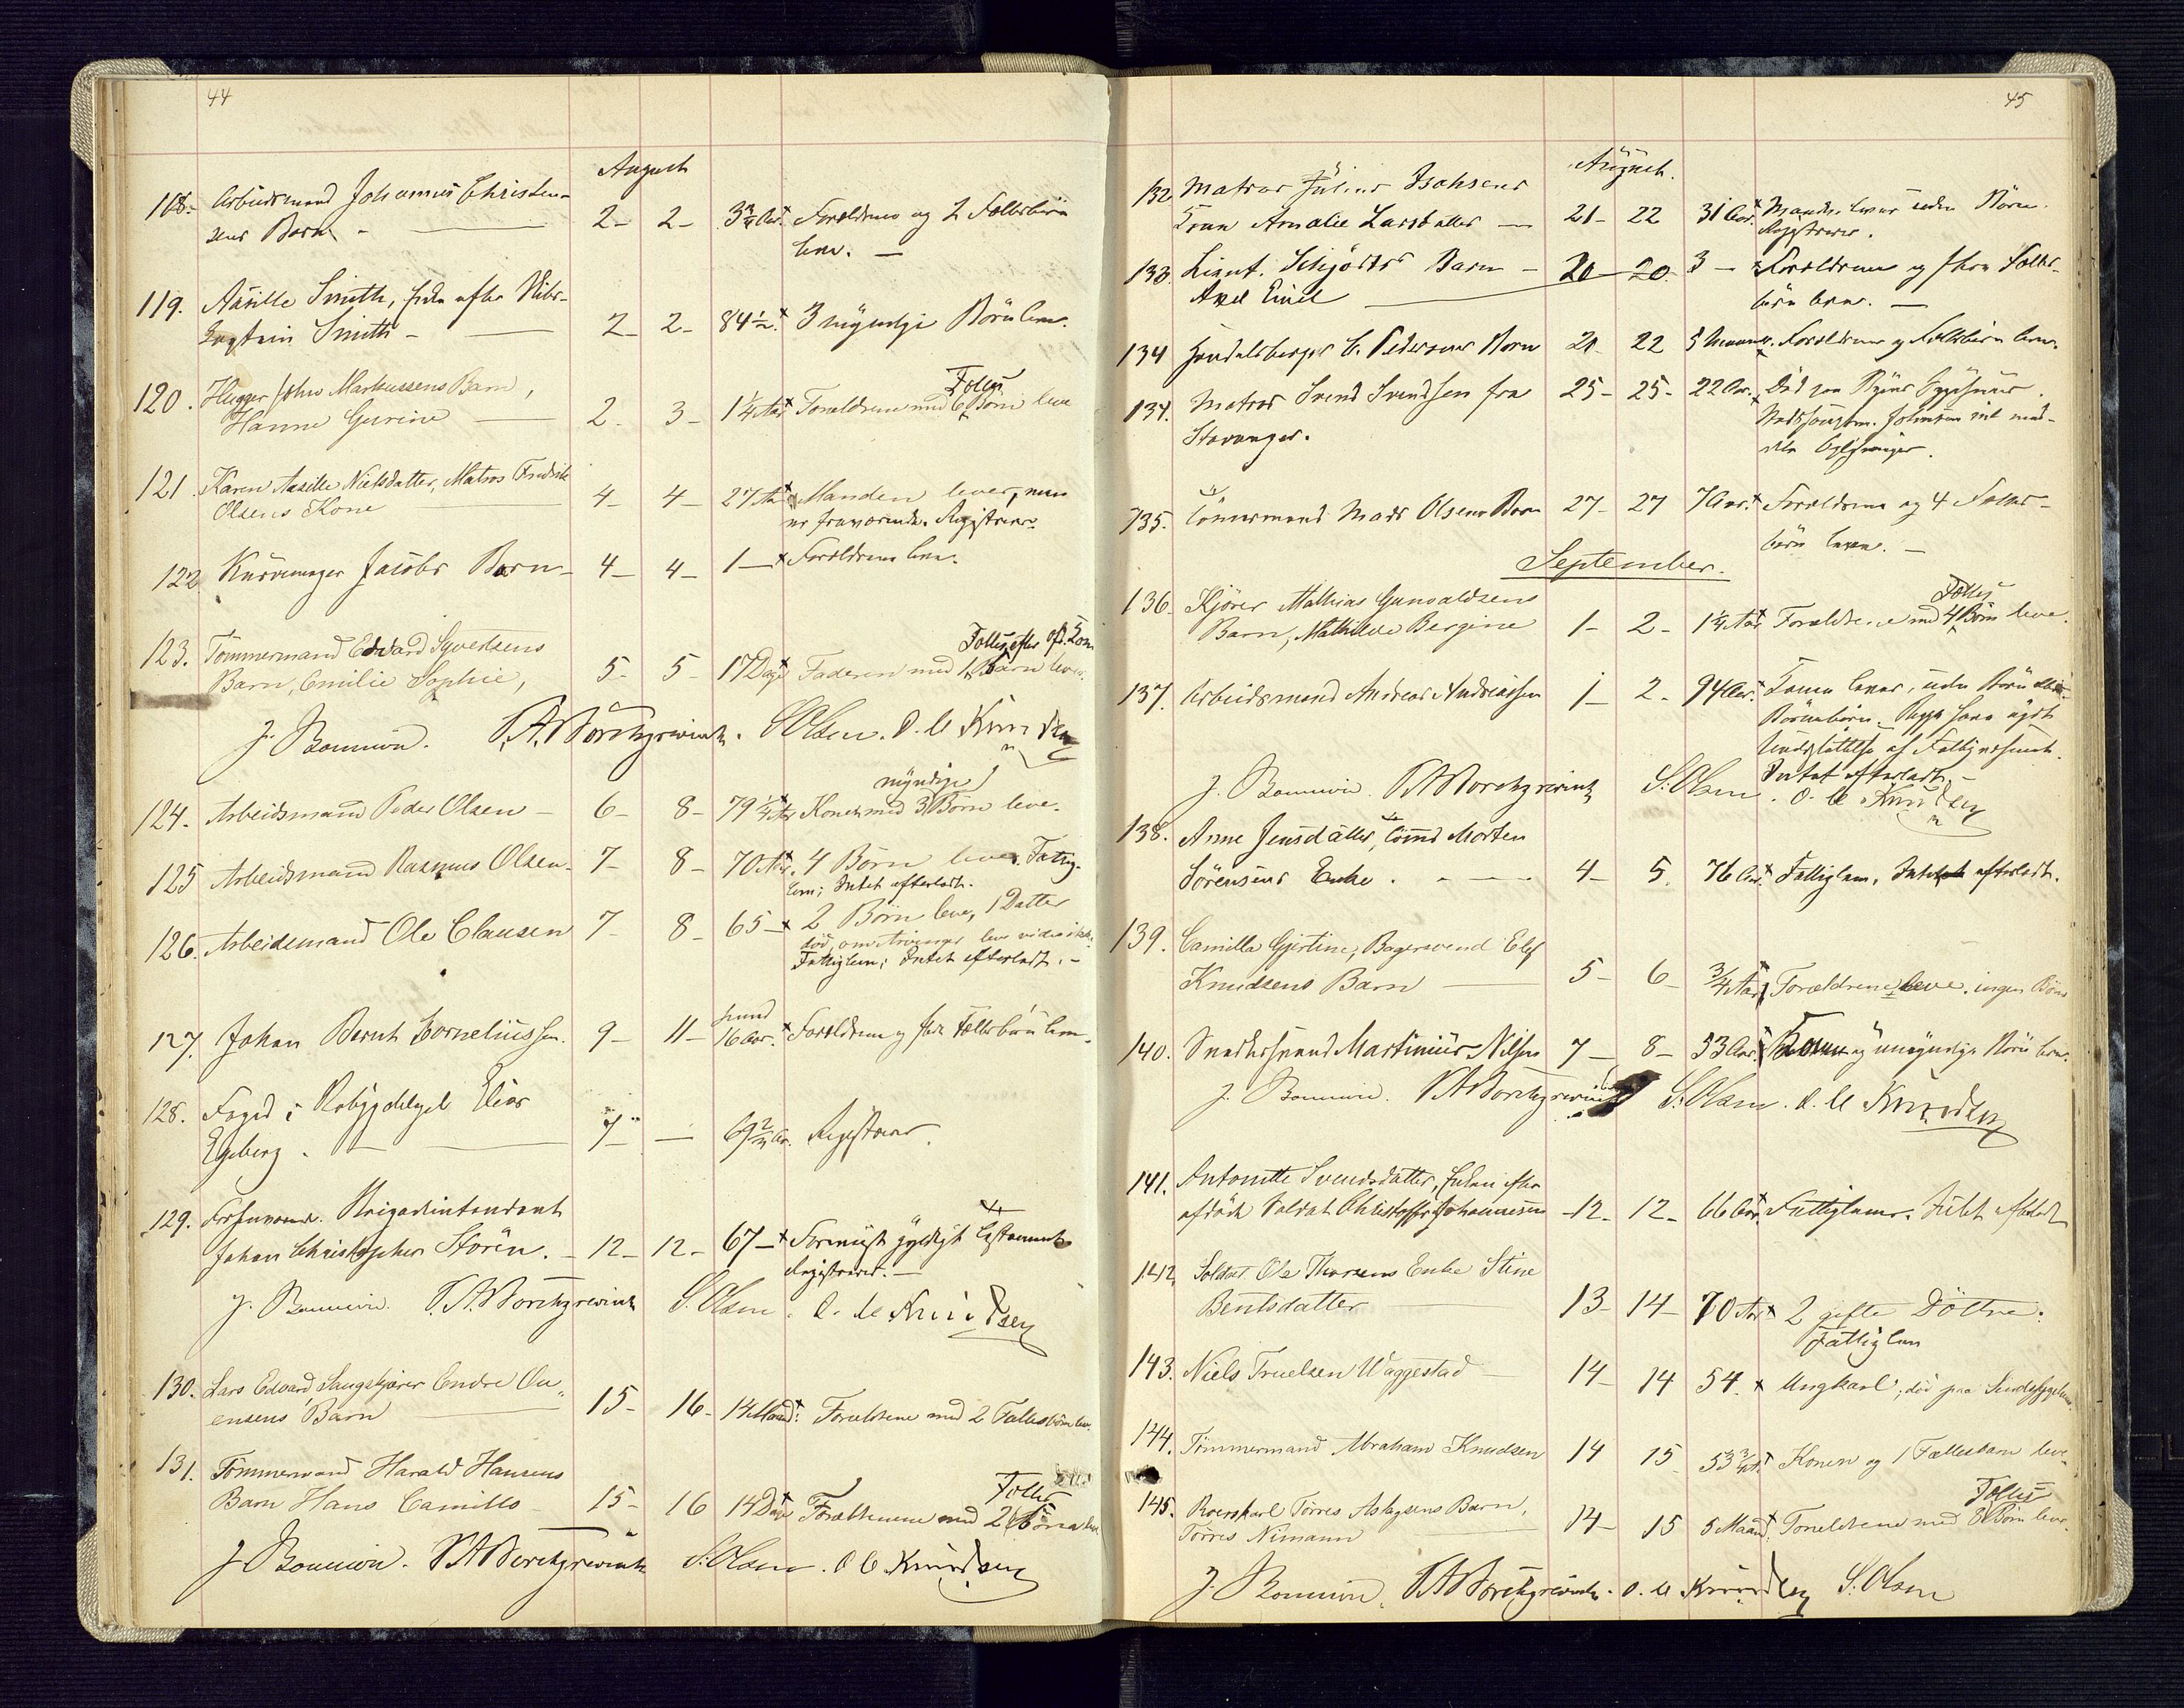 44
August
118. Arbeidsmand Johannes Christen-
sens Barn - 2- 2- 3¾ Aar. Forældrene og 2 Fællesbørn
leve. -
119. Aasille Smith, Enke efter Skibs-
Kaptein Smith - 2- 2- 84½. 3 myndige Børn leve.
120. Hugger John Markussens Barn,
Hanne Gurine 2. 3- 1¼ Aar Forældrene med 6 Fælles Børn leve
121. Karen Aasille Nielsdatter, Matros Fredrik
Olsens Kone 4- 4- 27 Aar Manden lever, men
er fraværende. Registreres.
122 Jacobs Barn- 4- 4- 1- Forældrene leve.
123. Tømmermand Edvard Syvertsens
Barn, Emilie Sophie, 5- 5- 17 Dage Faderen med 1 Fælles Barn lever.
J. Bonnevie. S. Olsen. O. C. Knudsen
124. Arbeidsmand Peder Olsen - 6- 8- 79¼ Aar Konen med 3 myndige Børn leve.
125 Arbeidsmand Rasmus Olsen- 7- 8- 70 Aar. 4 Børn leve. Fattig-
lem; Intet efterladt.
126. Arbeidsmand Ole Clausen 7- 8- 65- 2 Børn leve, 1 Datter
død, om Arvinger leve vides ikke.
Fattiglem; Intet efterladt. -
127. Johan Bernt Corneliussen. 9- 11- 16 Aar. Forældrene og flere Fællesbørn leve.
128. Foged i Robygdelaget Elias
Egeberg. - 7- - 69 Aar. Registreres.
129. Forhenværende Brigadeintendant
Johan Christopher Støren. - 12- 12- 67- Formeent gyldigt Testament
Registreres. -
J. Bonnevie. S. Olsen. O. C. Knudsen
130. Lars Edvard, Saugskjærer Endre Ou-
ensens Barn 15- 16- 14 Maand. Forældrene med 2 Fællesbørn leve.
131. Tømmermand Harald Hansens
Barn Hans Camillo - 15- 16 14 Dage Forældrene med 2 Fælles Børn leve
J. Bonnevie. S. Olsen. O. C. Knudsen
45
August.
132 Matros Julius Isaksens
Kone Amalie Larsdatter - 21- 22 31 Aar. Manden lever uden Børn.
Registreres.
133. Lieut. Schjøtts Barn - 20- 20. 3- Forældrene og flere Fælles-
Axel Emil børn leve. -
134 Handelsborger C. Pedersens Barn 21- 22 5 Maaneder. Forældrene og Fællesbørn leve.
134. Matros Svend Svendsen fra 25- 25- 22 Aar. Død paa Byens Sygehuus.
Stavanger.
135. Tømmermand Mads Olsens Barn 27- 27 7 Aar. Forældrene og 4 Fælles-
børn leve. -
September.
136. Kjører Mathias Gunvaldsens
Barn, Mathilde Bergine 1- 2- 1¼ Aar Forældrene med 4 Fælles Børn leve.
137. Arbeidsmand Andreas Andreassen 1- 2- 94 Aar. Konen lever, uden Børn eller
Børnebørn. Begge have nydt
Understøttelse af Fattigvæsenet.
Intet efterladt. -
J. Bonnevie. S. Olsen. O. C. Knudsen
138. Anne Jensdatter, Tømmermand Morten
Sørensens Enke. - 4- 5. 76 Aar. Fattiglem, Intet efterladt.
139. Camilla Gjertine, Bagersvend Elef
Knudsens Barn 5- 6- ¾ Aar Forældrene leve. ingen Børn
140. Snedkersvend Martinius Nilsen 7- 8- 53 Aar. Konen og umyndige Børn leve.
J. Bonnevie. S. Olsen. O. C. Knudsen
141. Antonette Svendsdatter, Enken efter
afdøde Soldat Christoffer Johannesen -12- 12- 66 Aar. Fattiglem. Intet efterladt
142. Soldat Ole Thorsens Enke Stine
Bentsdatter 13- 14- 70 Aar 2 gifte Døttre.
Fattiglem
143. Niels Truelsen Waggestad - 14- 14 54. Ungkarl, død paa Sindssygehuus.
144. Tømmermand Abraham Knudsen 14 15 53¾ Aar. Konen og 1 Fællesbarn leve.
145. Roerskarl Tørres Aslagsens Barn,
Tørres Nimann 14- 15 5 Maand. Forældrene med 8 Fælles Børn leve.
J. Bonnevie. O. C. Knudsen S. Olsen